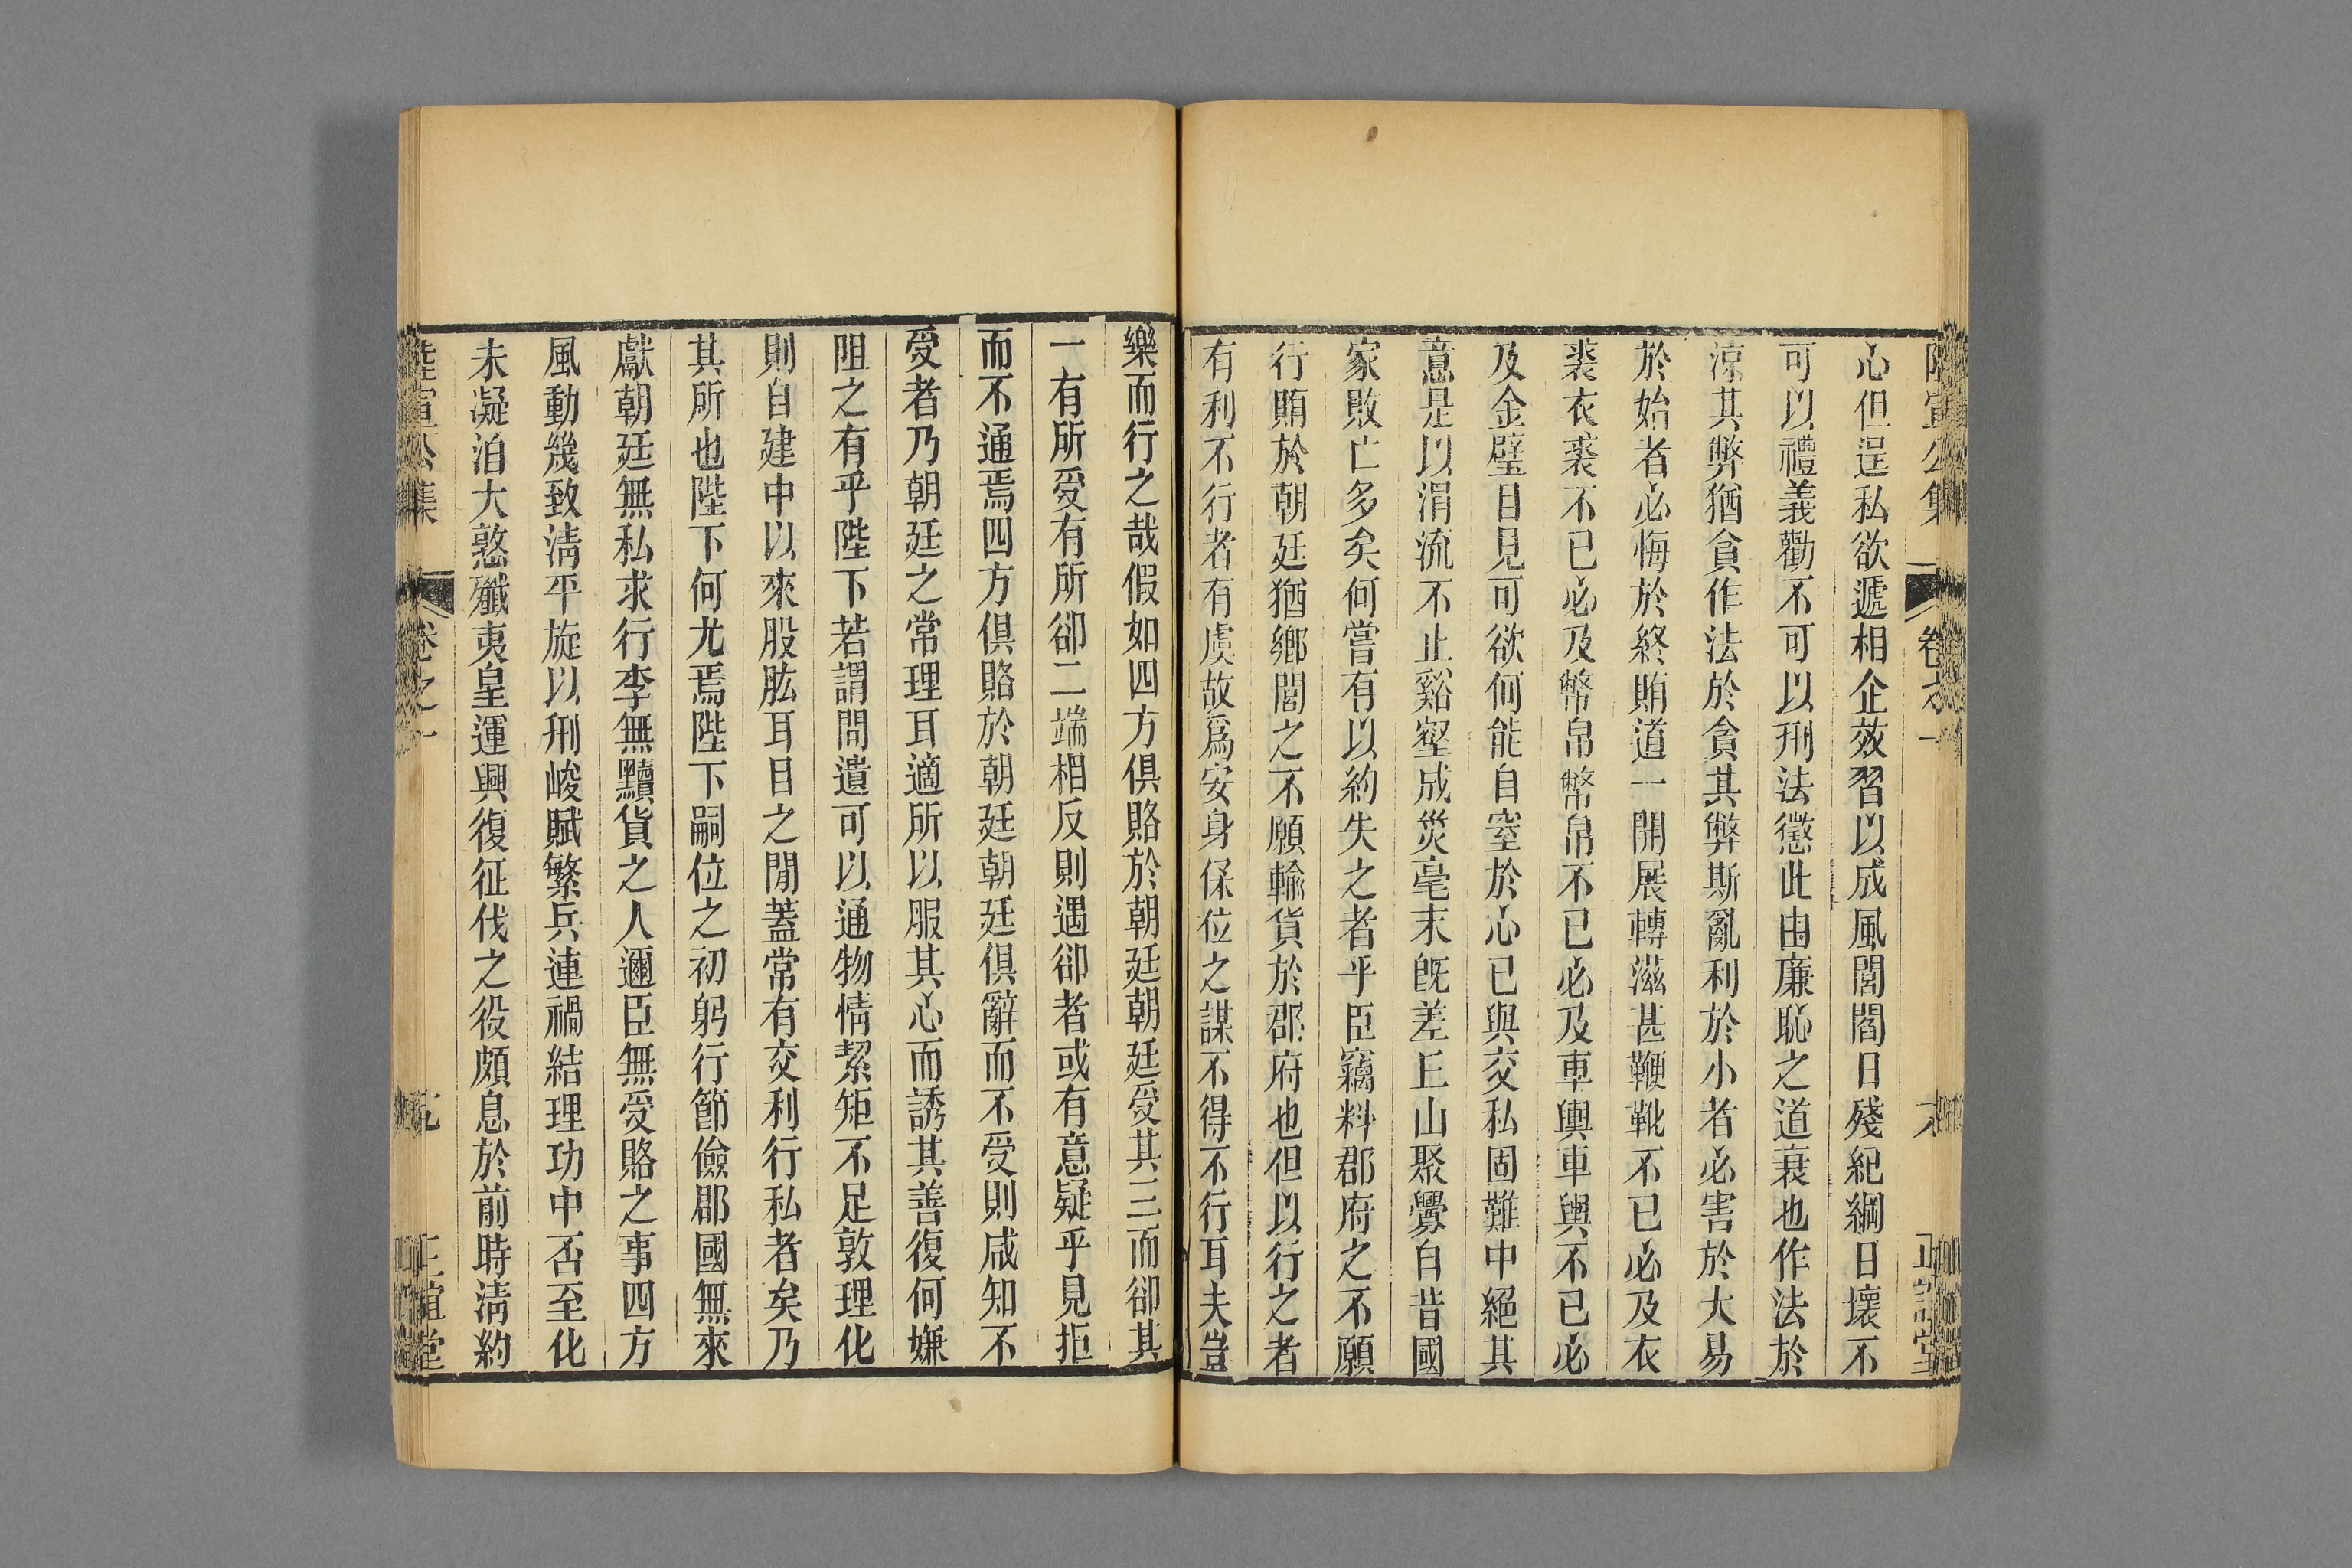 心但逞私欲遞相企效習以成風閭閻日殘紀綱日壞不
可以禮義勸不可以刑法懲此由廉恥之道衰也作法於
涼其弊猶貪作法於貪其弊斯亂利於小者必害於大易
於始者必悔於終賄道一開展轉滋甚鞭靴不已必及衣
裘衣裘不已必及幣帛幣帛不已必及車輿車輿不已必
及金璧目見可欲何能自窒於心已與交私固難中絕其
意是以涓流不止谿壑成災毫末旣差丘山聚釁自昔國
家敗亡多矣何嘗有以約失之者乎臣竊料郡府之不願
行賄於朝廷猶鄉閭之不願輸貨於郡府也但以行之者
有利不行者有虞故爲安身保位之謀不得不行耳夫豈
樂而行之哉假如四方俱賂於朝廷朝廷受其三而卻其
一有所受有所卻二端相反則遇卻者或有意疑乎見拒
而不通焉四方俱賂於朝廷朝廷俱辭而不受則咸知不
受者乃朝廷之常理耳適所以服其心而誘其善復何嫌
阻之有乎陛下若謂問遺可以通物情絜矩不足敦理化
則自建中以來股肱耳目之閒蓋常有交利行私者矣乃
其所也陛下何尤焉陛下嗣位之初躬行節儉郡國無來
獻朝廷無私求行李無黷貨之人邇臣無受賂之事四方
風動幾致淸平旋以刑峻賦繁兵連禍結理功中否至化
未凝洎大憝殲夷皇運興復征伐之役頗息於前時淸約
陸宣公集 卷之一 正誼堂